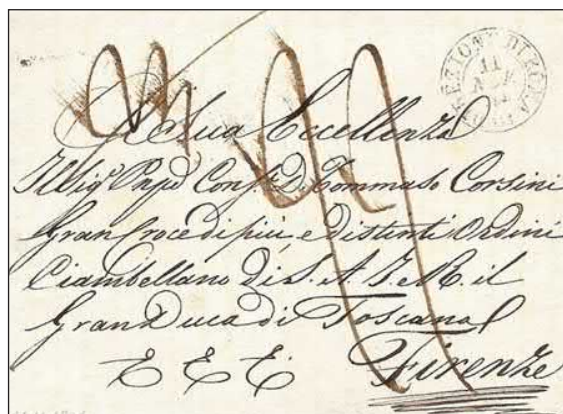 DIREZIONE DI ROMA
11
A Sua Eccellenza
Il Sig.r Conse D. Tommaso Corsini
Gran Croce di più, e distinti Ordini
Ciambellano di S. A. I. e R. il
Gran Duca di Toscana
E E E Firenze